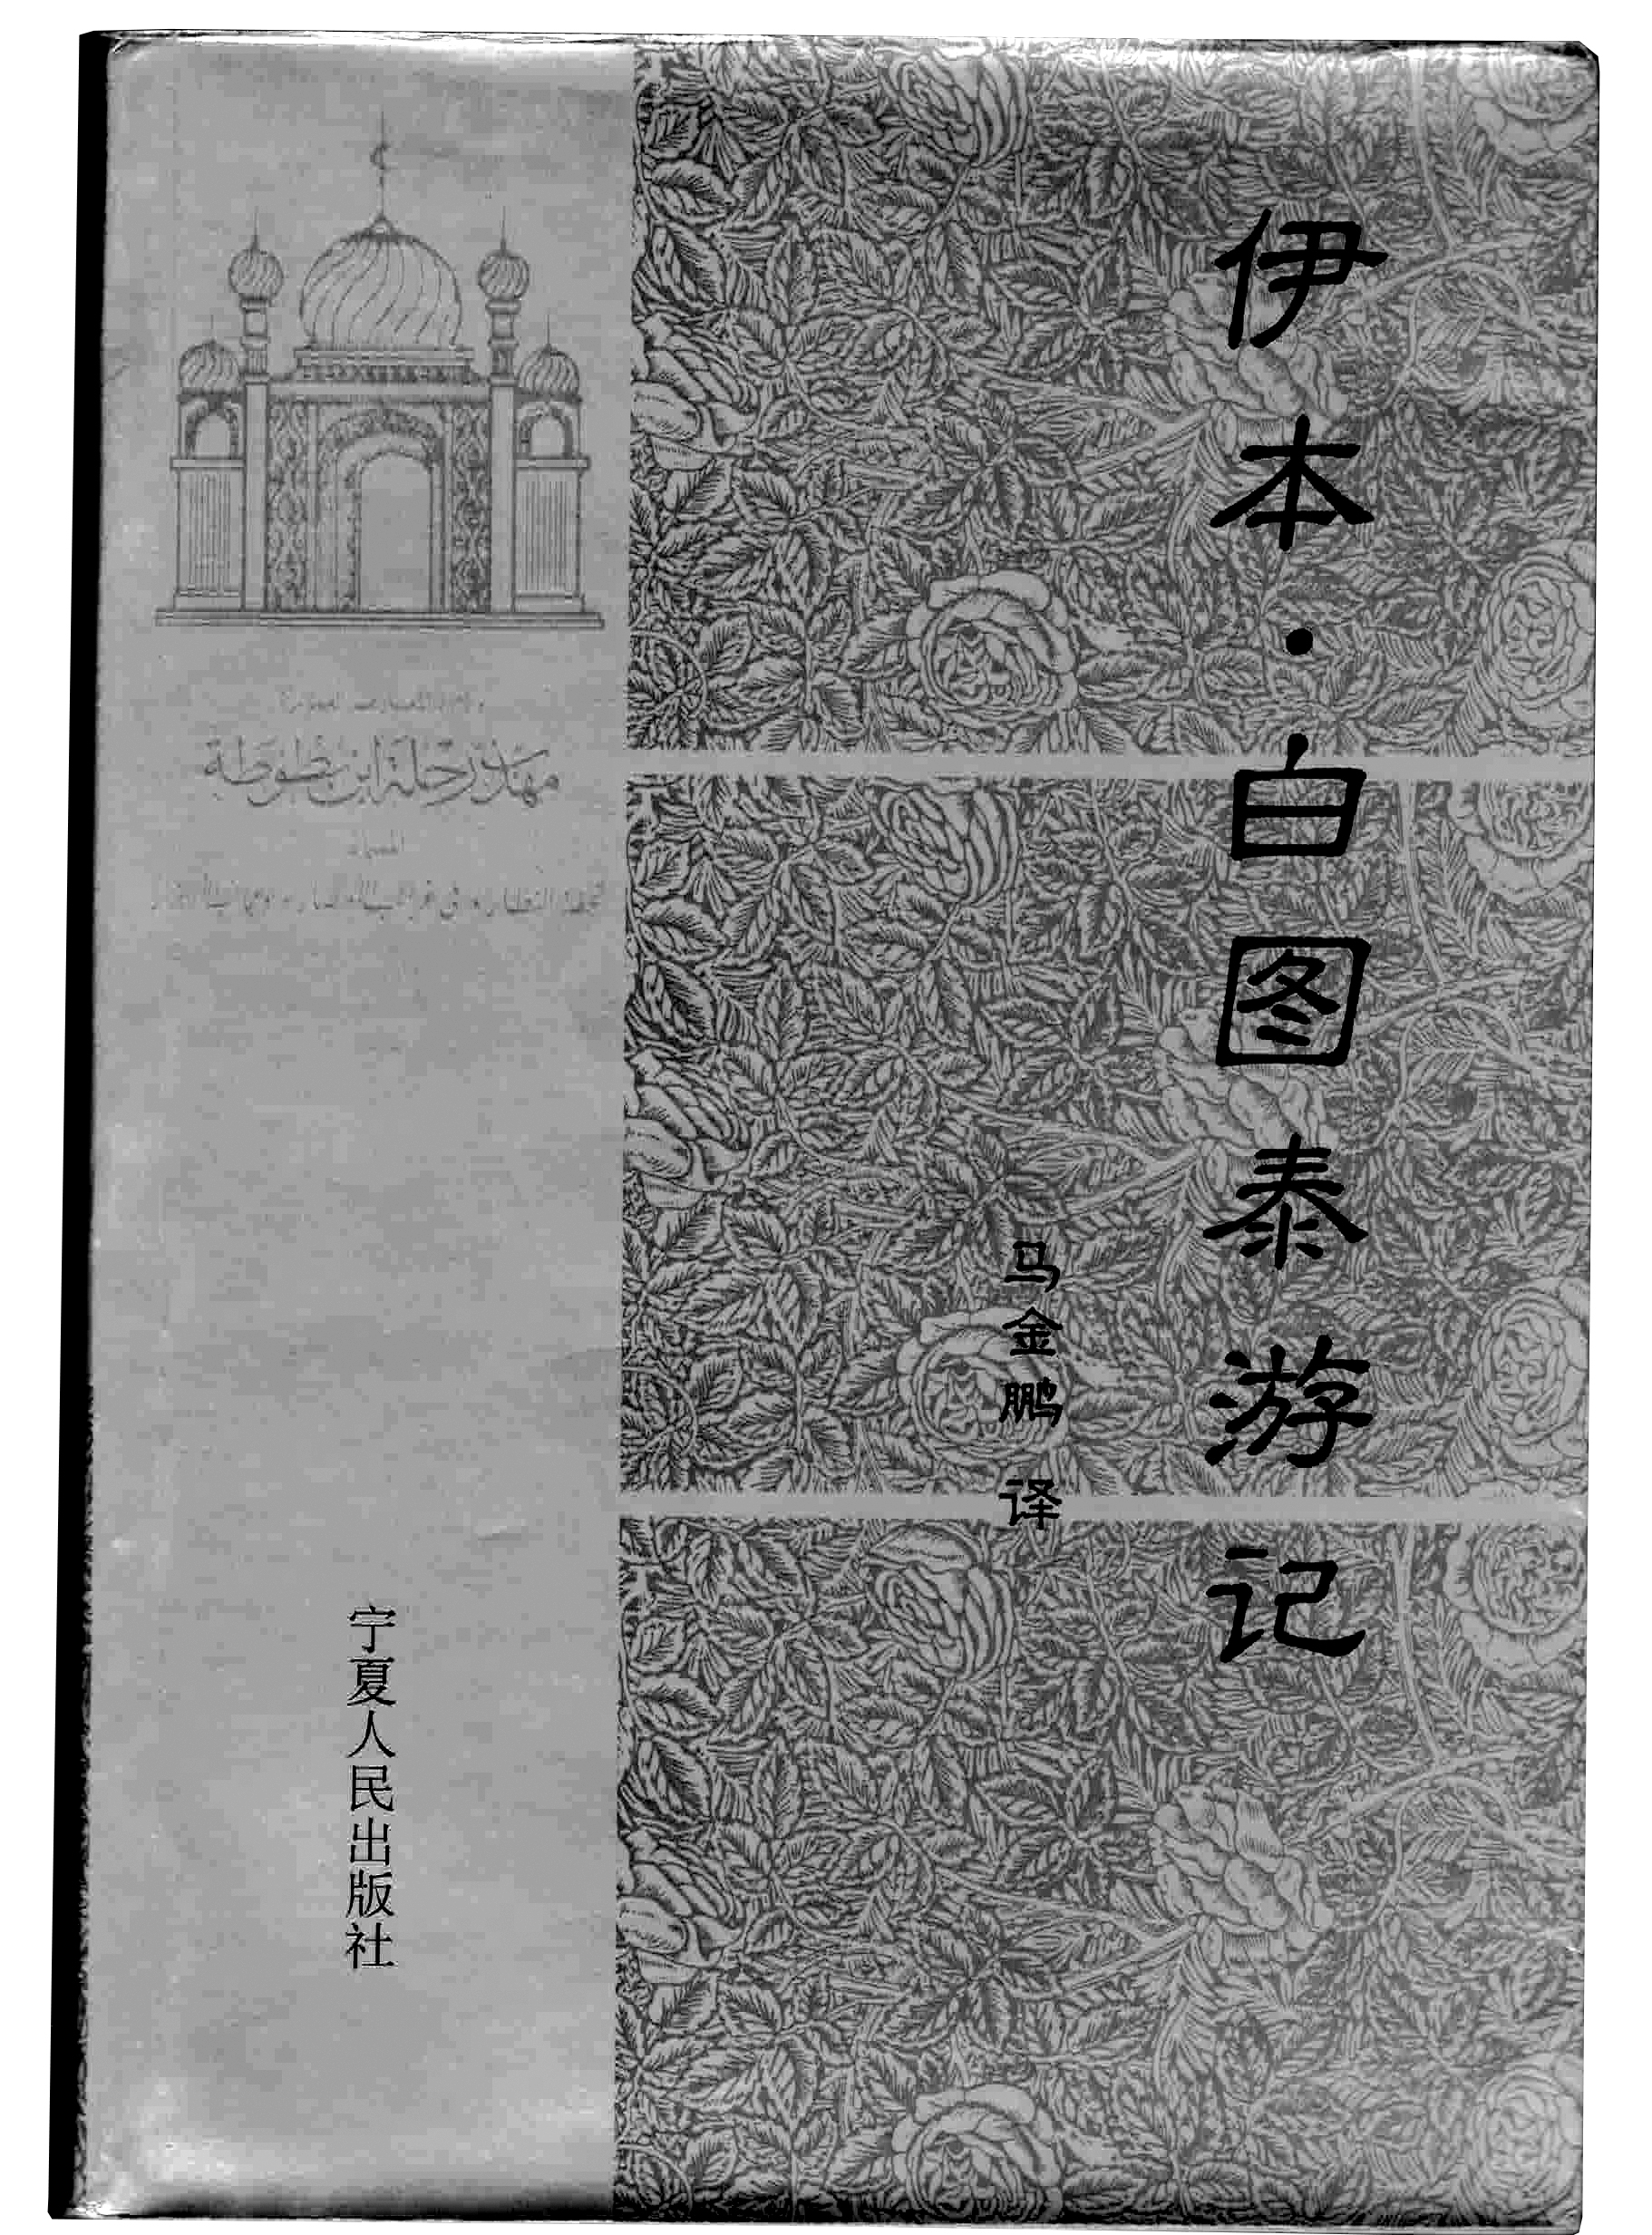 伊本·白图泰游记
马金鹏 译
مهذب رحلة ابن بطوطة
宁夏人民出版社